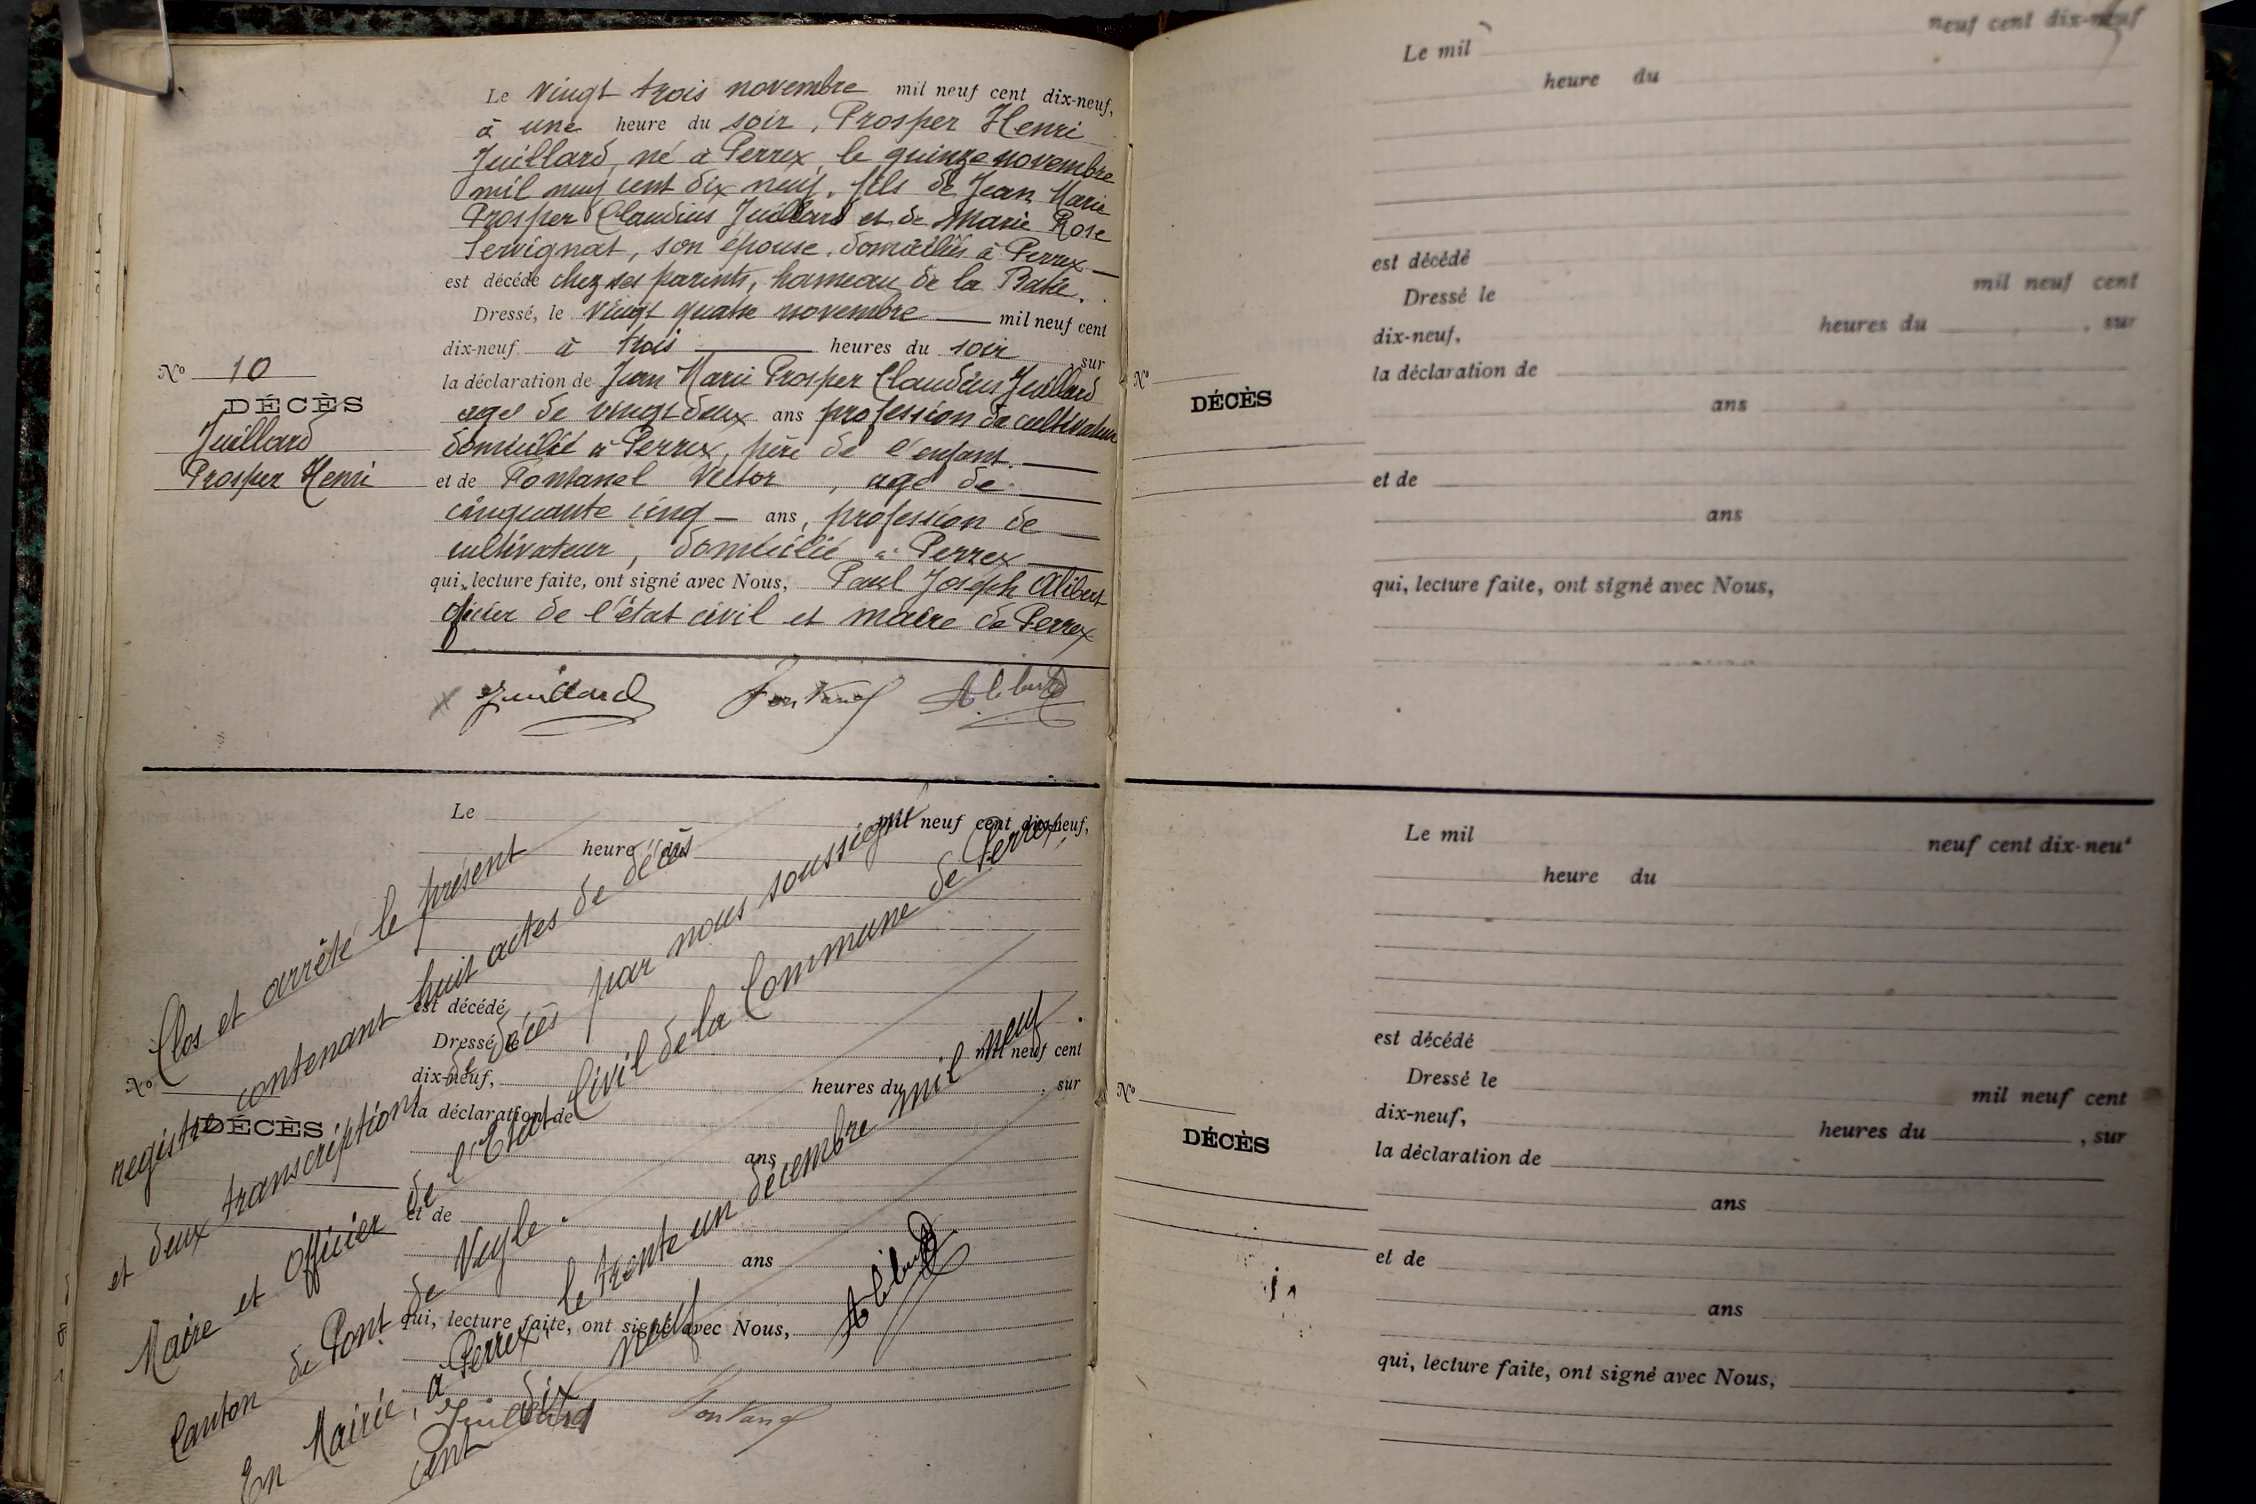 Le vingt trois novembre mil neuf cent dix-neuf,
à une heure du soir, Prosper Henri
Juillard, né à Perrex, le quinze novembre
mil neuf cent dix neuf, fils de Jean Marie
Prosper Claudius Juillard et de Marie Rose
Servignat, son épouse, domiciliés à Perrex
est décédé chez ses parents, hameau de la Batie.
Dressé, le vingt quatre novembre mil neuf cent
dix-neuf à trois heures du soir, sur
la déclaration de Jean Marie Prosper Claudius Juillard
agé de vingt deux ans profession de cultivateur
domicilié à Perrex, père de l'enfant.
et de Fontanel Victor, agé de
cinquante cinq ans, profession de
cultivateur, domicilié à Perrex
qui, lecture faite, ont signé avec Nous, Paul Joseph Alibert
officier de l'état civil et maire de Perrex
Nº 10
DÉCÈS
Juillard
Prosper Henri
Juillard Fontanel Alibert
Le mil neuf cent dix-neuf,
heure du
est décédé
Dressé le mil neuf cent
dix-neuf, heures du , sur
la déclaration de
ans
et de
ans
qui, lecture faite, ont signé avec Nous,
Nº
DÉCÈS
Clos et arrêté le présent
registre contenant huit actes de décès
et deux transcriptions de décès par nous soussigné
Maire et Officier de l'Etat Civil de la Commune de Perrex,
Canton de Pont de Veyle.
En Mairie, à Perrex, le trente un décembre mil neuf
cent dix neuf
Alibert
Juillard Fontanel
Le mil neuf cent dix-neuf
heure du
est décédé
Dressé le mil neuf cent
dix-neuf, heures du , sur
la déclaration de
ans
et de
ans
qui, lecture faite, ont signé avec Nous,
Nº
DÉCÈS
Le mil neuf cent dix-neu
heure du
est décédé
Dressé le mil neuf cent
dix-neuf, heures du , sur
la déclaration de
ans
et de
ans
qui, lecture faite, ont signé avec Nous,
Nº
DÉCÈS